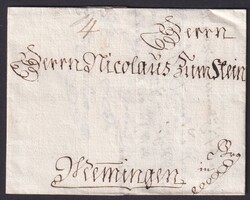 4
Herrn
Herrn Nicolaus Zumstein
in
Memmingen